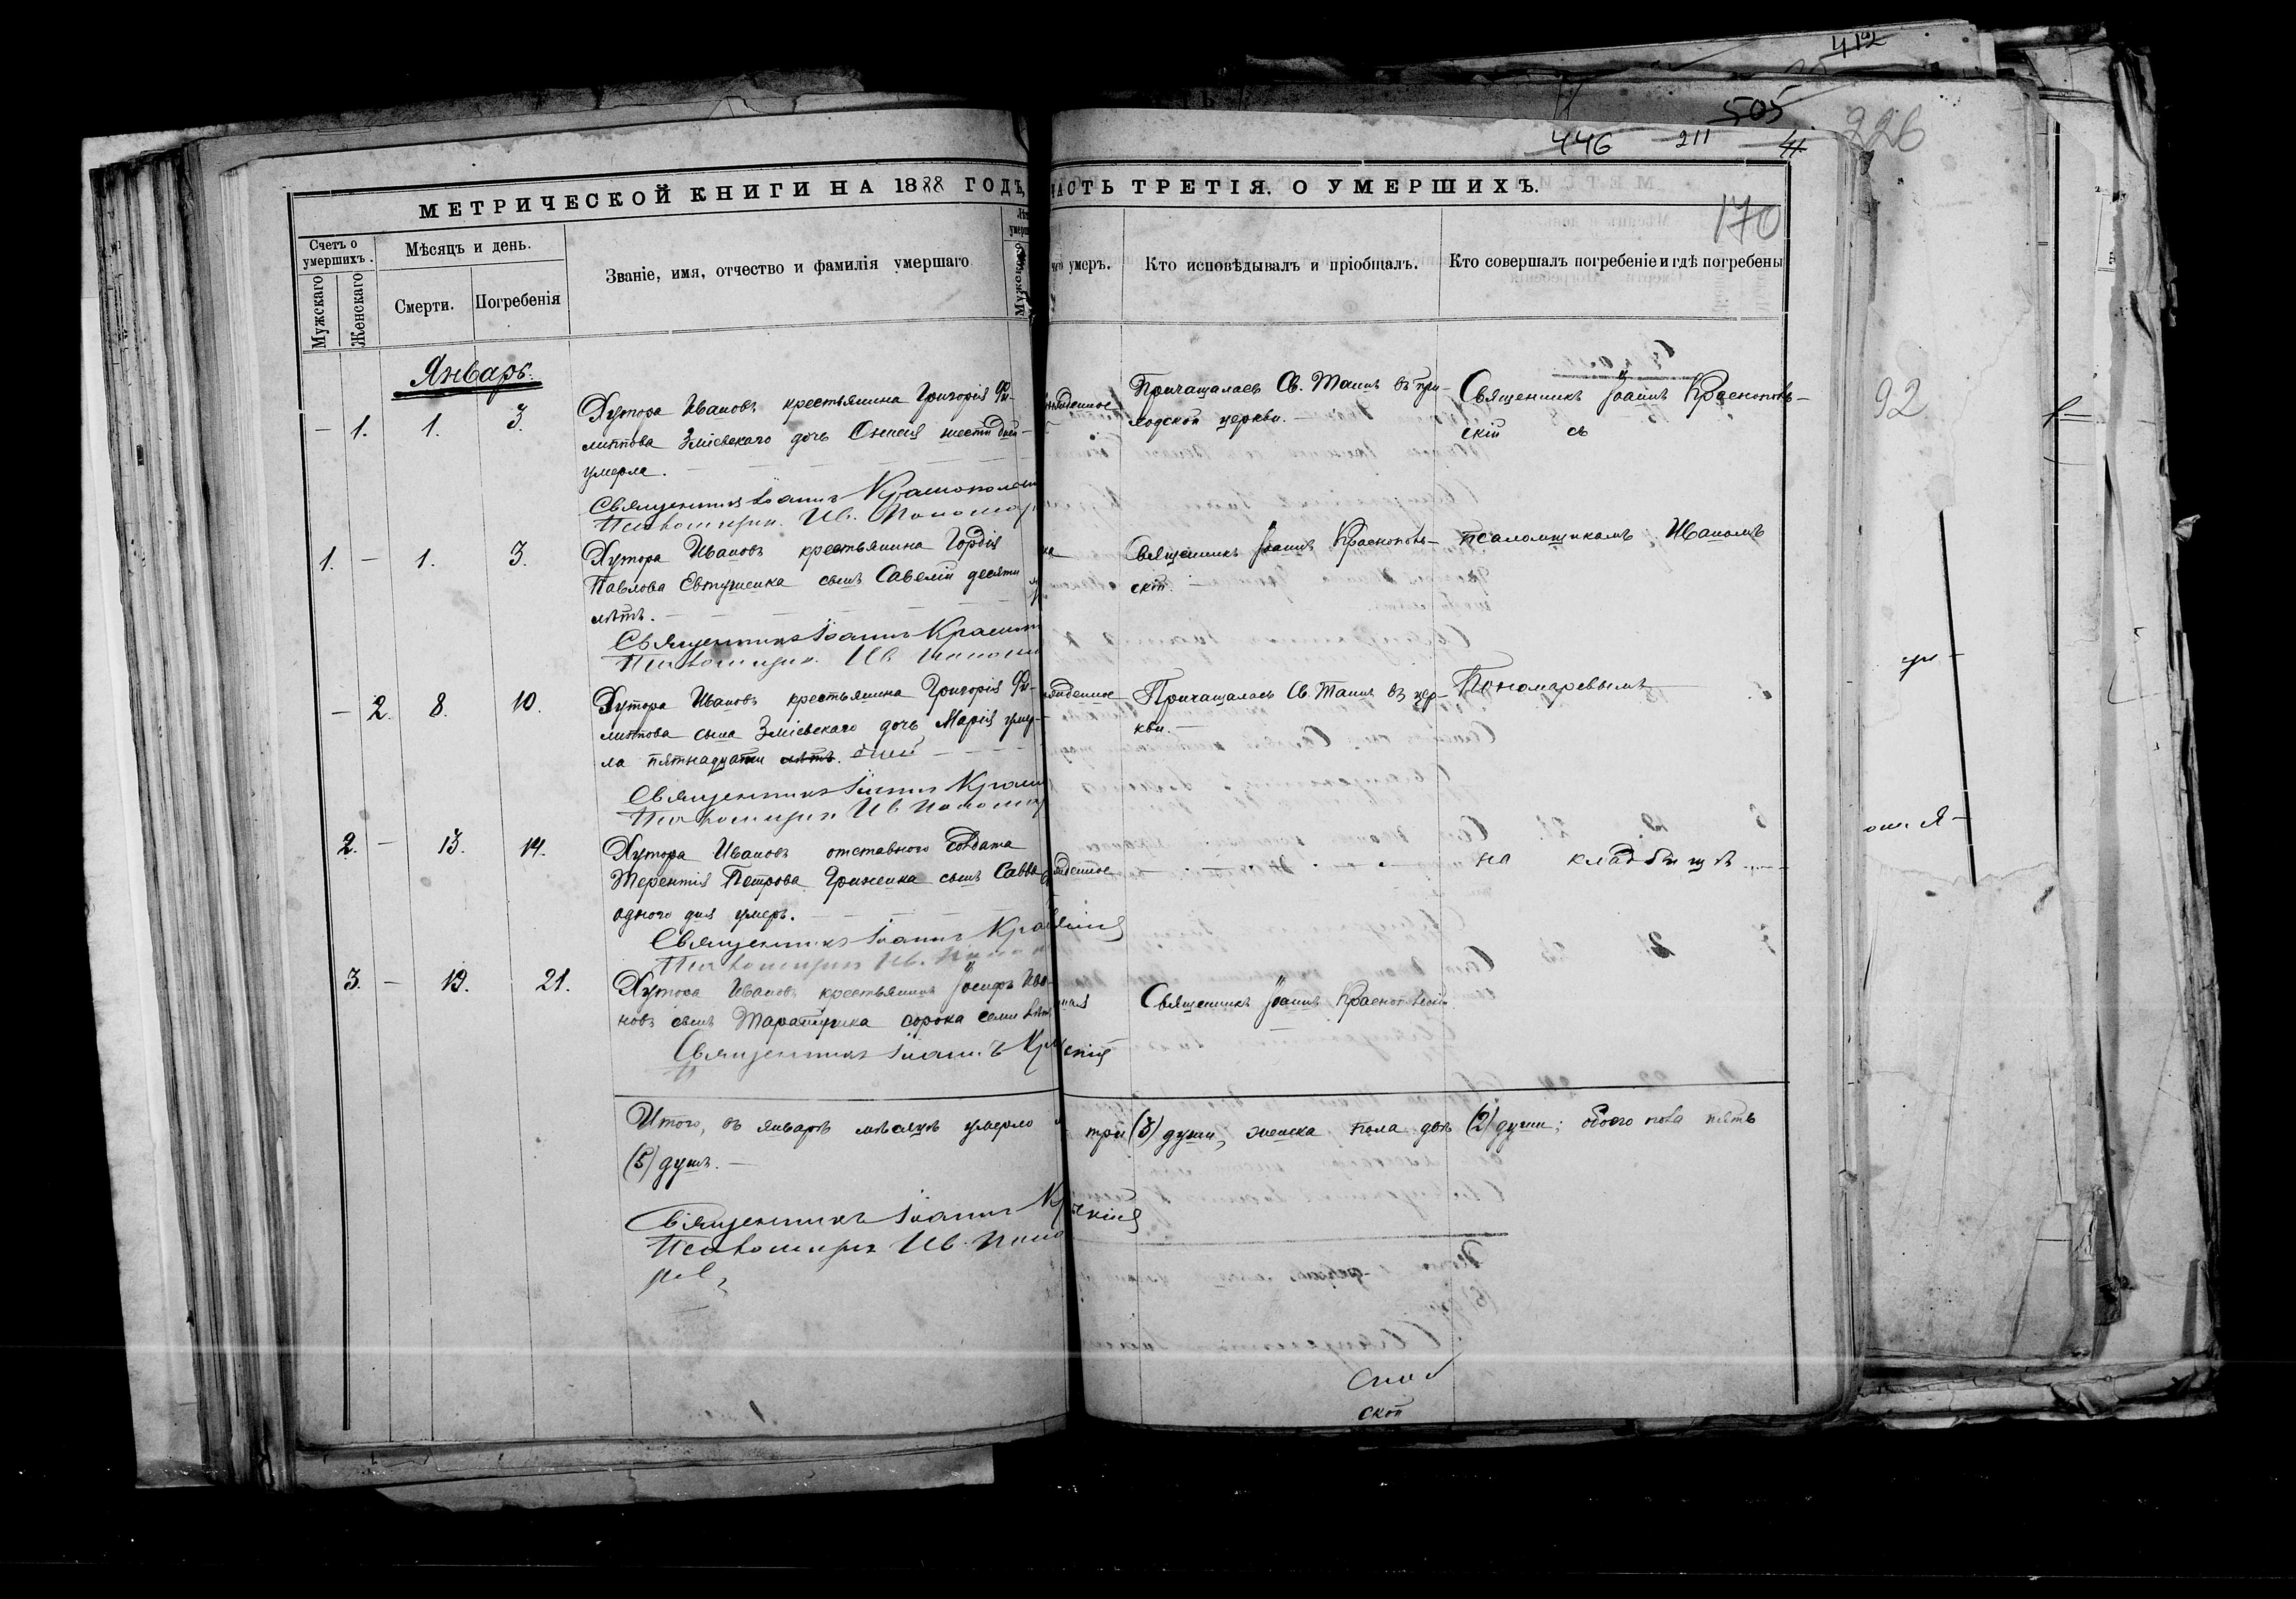 412
505
446 211 41
226
МЕТРИЧЕСКОЙ КНИГИ НА 1888 ГОДЪ, ЧАСТЬ ТРЕТІЯ. О УМЕРШИХЪ.
170
Счетъ о умершихъ.
Мужскаго
Женскаго
Мѣсяцъ и день.
Смерти.
Погребенія
Званіе, имя, отчество и фамилія умершаго
Мужскаго
умеръ.
Кто исповѣдывалъ и пріобщалъ.
Кто совершалъ погребеніе и гдѣ погребены
Январь.
— 1. 1. 3.
Хутора Ивановъ крестьянина Григорія Фи-
липпова Зміевскаго дочь Ксенія шести дней
умерла.
Священникъ Іоаннъ Краснополь
Псаломщикъ Ив. Пономар
Причащалась Св. Таинъ въ при-
ходской церкви.
Священникъ Іоаннъ Краснополь-
скій съ
92
1. — 1. 3.
Хутора Ивановъ крестьянина Гордія
Павлова Евтушенка сынъ Савелій десяти
лѣтъ.
Священникъ Іоаннъ Красноп
Псаломщикъ Ив Поном
Священникъ Іоаннъ Краснополь-
скій.
псаломщикомъ Иваномъ
— 2. 8. 10.
Хутора Ивановъ крестьянина Григорія Фи-
липпова сына Зміевскаго дочь Марія умер-
ла пятнадцати лѣтъ. дней
Священникъ Іоаннъ Красн
Псаломщикъ Ив Пономар
Причащалась Св. Таинъ въ цер-
кви.
Пономаревымъ
2. — 13. 14.
Хутора Ивановъ отставного солдата
Терентія Петрова Гриненка сынъ Савва
одного дня умеръ.
Священникъ Іоаннъ Кра
Псаломщикъ Ив.
на кладбищѣ
3. — 19. 21.
Хутора Ивановъ крестьянинъ Іосифъ Ива-
новъ сынъ Таратушка сорока семи лѣтъ
Священникъ Іоаннъ Кр
Священникъ Іоаннъ Краснопольскій
Итого, въ январѣ мѣсяцѣ умерло м три (3) души, женска пола двѣ (2) души; обоего пола пять
(5) душъ.
Священникъ Іоаннъ Кр
Псаломщикъ Ив. Поно
рев
скій